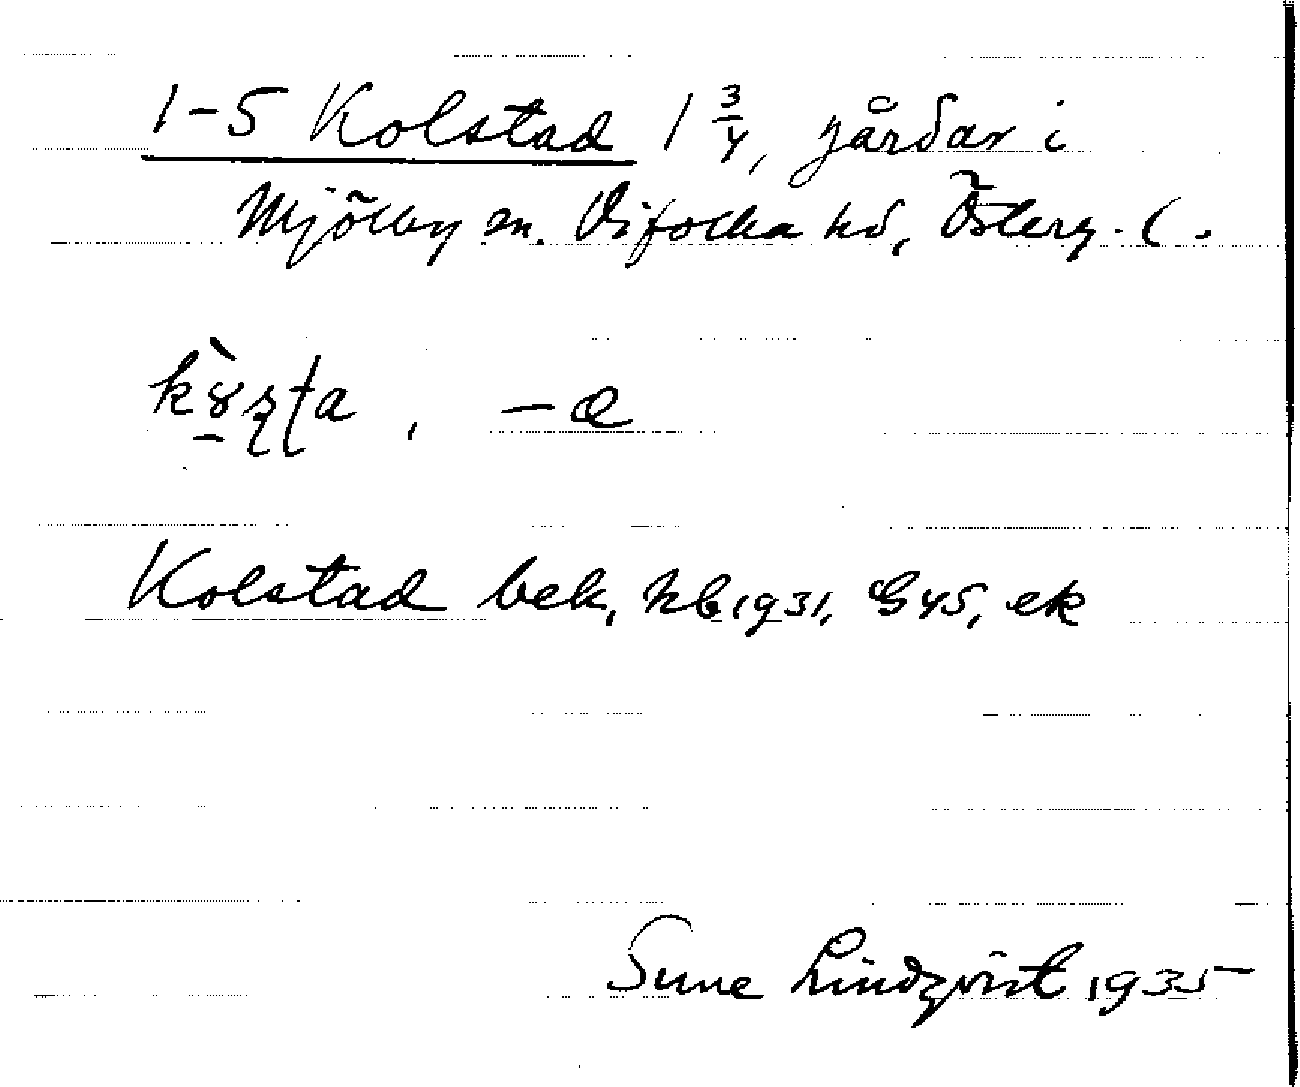 1-5 Kolstad 1 3/4, gårdar i
Mjölby sn. Vifolka hd, Österg. l.
, -æ
Kolstad bek, hb 1931, G45, ek
Sune Lindqvist 1935